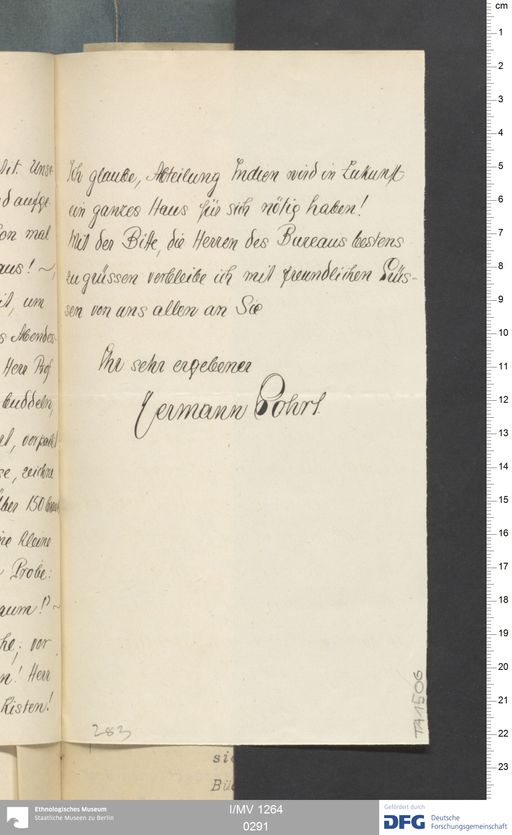 Ich glaube, Abteilung Indien wird in Zukunft
ein ganzes Haus für sich nötig haben!
Mit der Bitte, die Herren des Bureaus bestens
zu grüssen verbleibe ich mit freundlichen Grüs-
sen von uns allen an Sie
Ihr sehr ergebener
Hermann Pohrt
283
TA 1506
aufge
mal
aus! ~
um
Abendes
Herr Prof.
buddeln,
zeichne
Über 150
kleine
Probe:
aum!" ~
vor
n! Herr
Kisten!
cm
1
2
3
4
5
6
7
8
9
10
11
12
13
14
15
16
17
18
19
20
21
22
23
Ethnologisches Museum
Staatliche Museen zu Berlin
I/MV 1264
0291
Gefördert durch
DFG Deutsche
Forschungsgemeinschaft